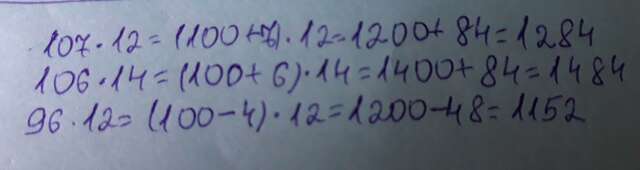 107·12=(100+7)·12=1200+84=1284
106·14=(100+6)·14=1400+84=1484
96·12=(100-4)·12=1200-48=1152